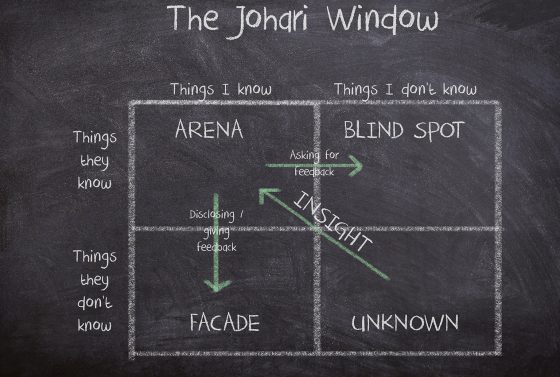 The Johari Window
Things I know
Things I don't know
Things
they
know
ARENA
BLIND SPOT
Asking for
feedback
Disclosing /
giving
feedback
INSIGHT
Things
they
don't
know
FACADE
UNKNOWN